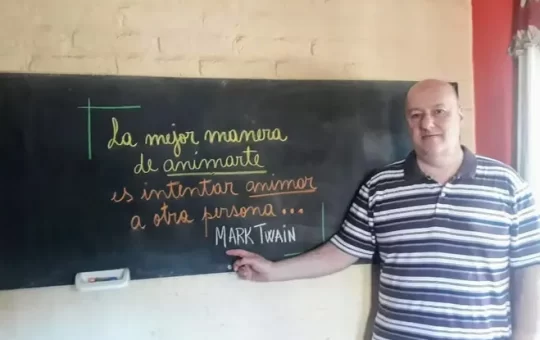 La mejor manera
de animarte
es intentar animar
a otra persona...
MARK TWAIN